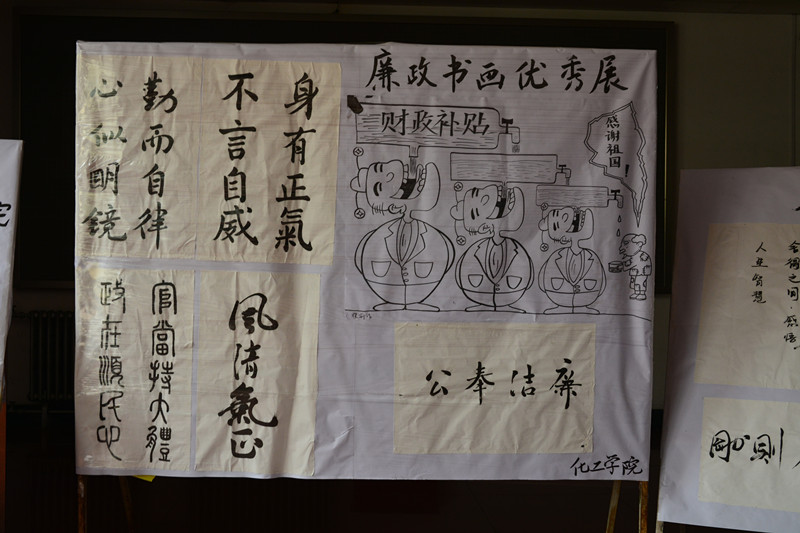 廉政书画优秀展
身有正氣
不言自威
勤而自律
心似明鏡
财政补贴
感谢祖国!
官當持大體
政在順民心
風清氣正
廉洁奉公
化工学院
舍得之间·感悟
人生智慧
剛則
院